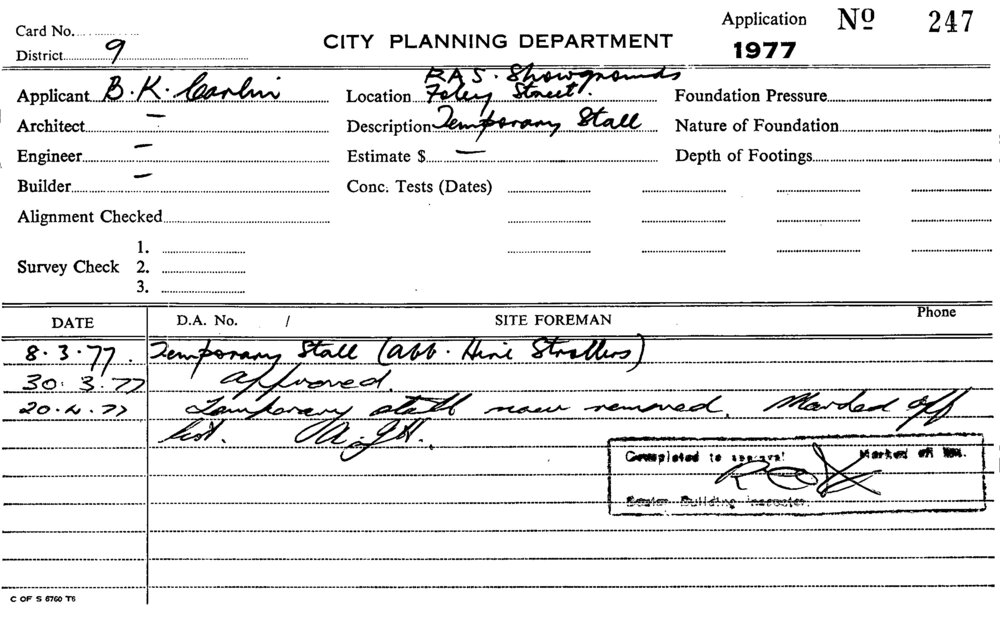 Card No.
District 9
CITY PLANNING DEPARTMENT
Application No 247
1977
Applicant B. K. Carlin
Architect —
Engineer —
Builder —
Alignment Checked
Survey Check 1.
2.
3.
Location R.A.S. Showgrounds
Foley Street.
Description Temporary Stall
Estimate $ —
Conc. Tests (Dates)
Foundation Pressure
Nature of Foundation
Depth of Footings
DATE D.A. No. / SITE FOREMAN Phone
8.3.77. Temporary Stall (abb. Hire Strollers)
30.3.77 approved.
20.4.77 Temporary stall now removed. Marked off
list.
Completed to approval Marked off
Senior Building Inspector
C OF S 8760 T6